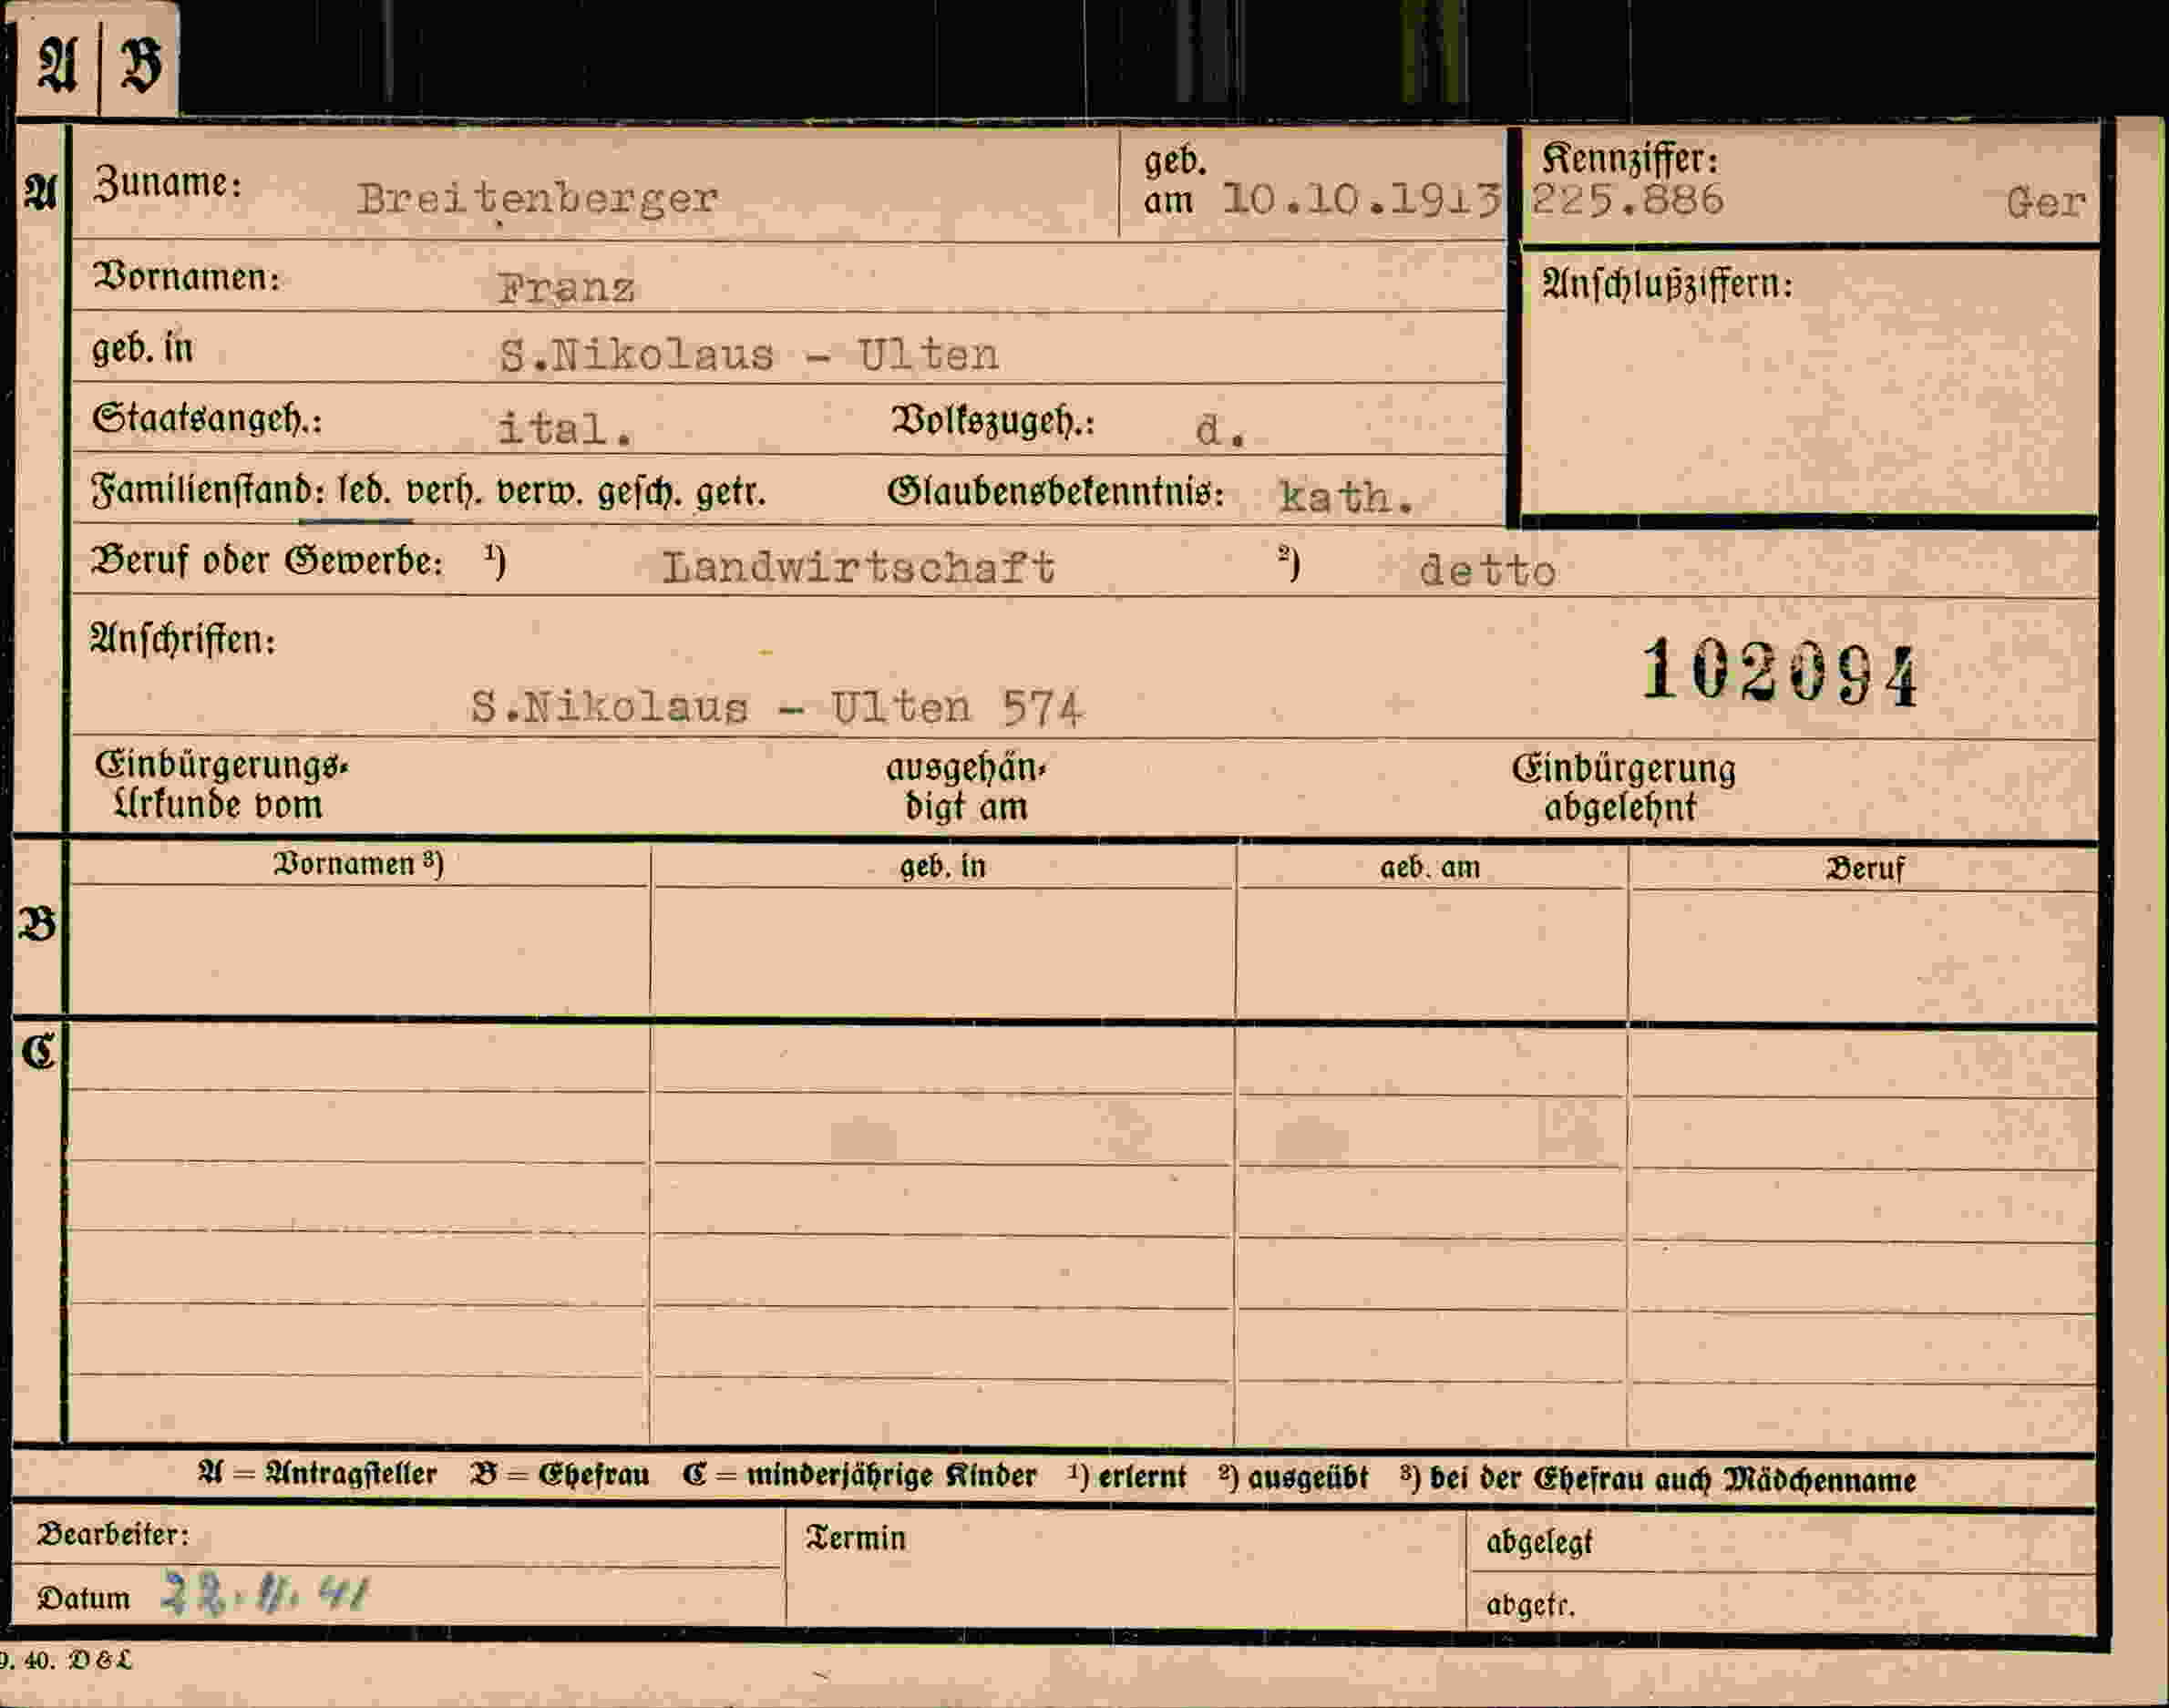 A B
A Zuname: Breitenberger geb. am 10.10.1913 Kennziffer: 225.886 Ger
Vornamen: Franz Anschlußziffern:
geb. in S.Nikolaus - Ulten
Staatsangeh.: ital. Volkszugeh.: d.
Familienstand: led. verh. verw. gesch. getr. Glaubensbekenntnis: kath.
Beruf oder Gewerbe: ¹) Landwirtschaft ²) detto
Anschriften: 102094
S.Nikolaus - Ulten 574
Einbürgerungs- ausgehän- Einbürgerung
Urkunde vom digt am abgelehnt
Vornamen ³) geb. in geb. am Beruf
B
C
A = Antragsteller B = Ehefrau C = minderjährige Kinder ¹) erlernt ²) ausgeübt ³) bei der Ehefrau auch Mädchenname
Bearbeiter: Termin abgelegt
Datum 22.11.41 abgetr.
9. 40. D & L